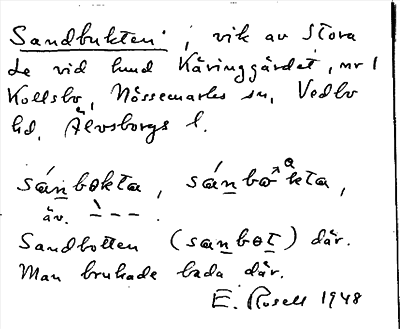 Sandbukten, vik av Stora
Le vid lund Käringgärdet, nr 1
Kollsbo, Nössemarks sn, Vedbo
hd, Älvsborgs l.
sánbokta, sánbo^akta,
äv. `---.
Sandbotten (sanbot) där.
Man brukade bada där.
E. Rosell 1948